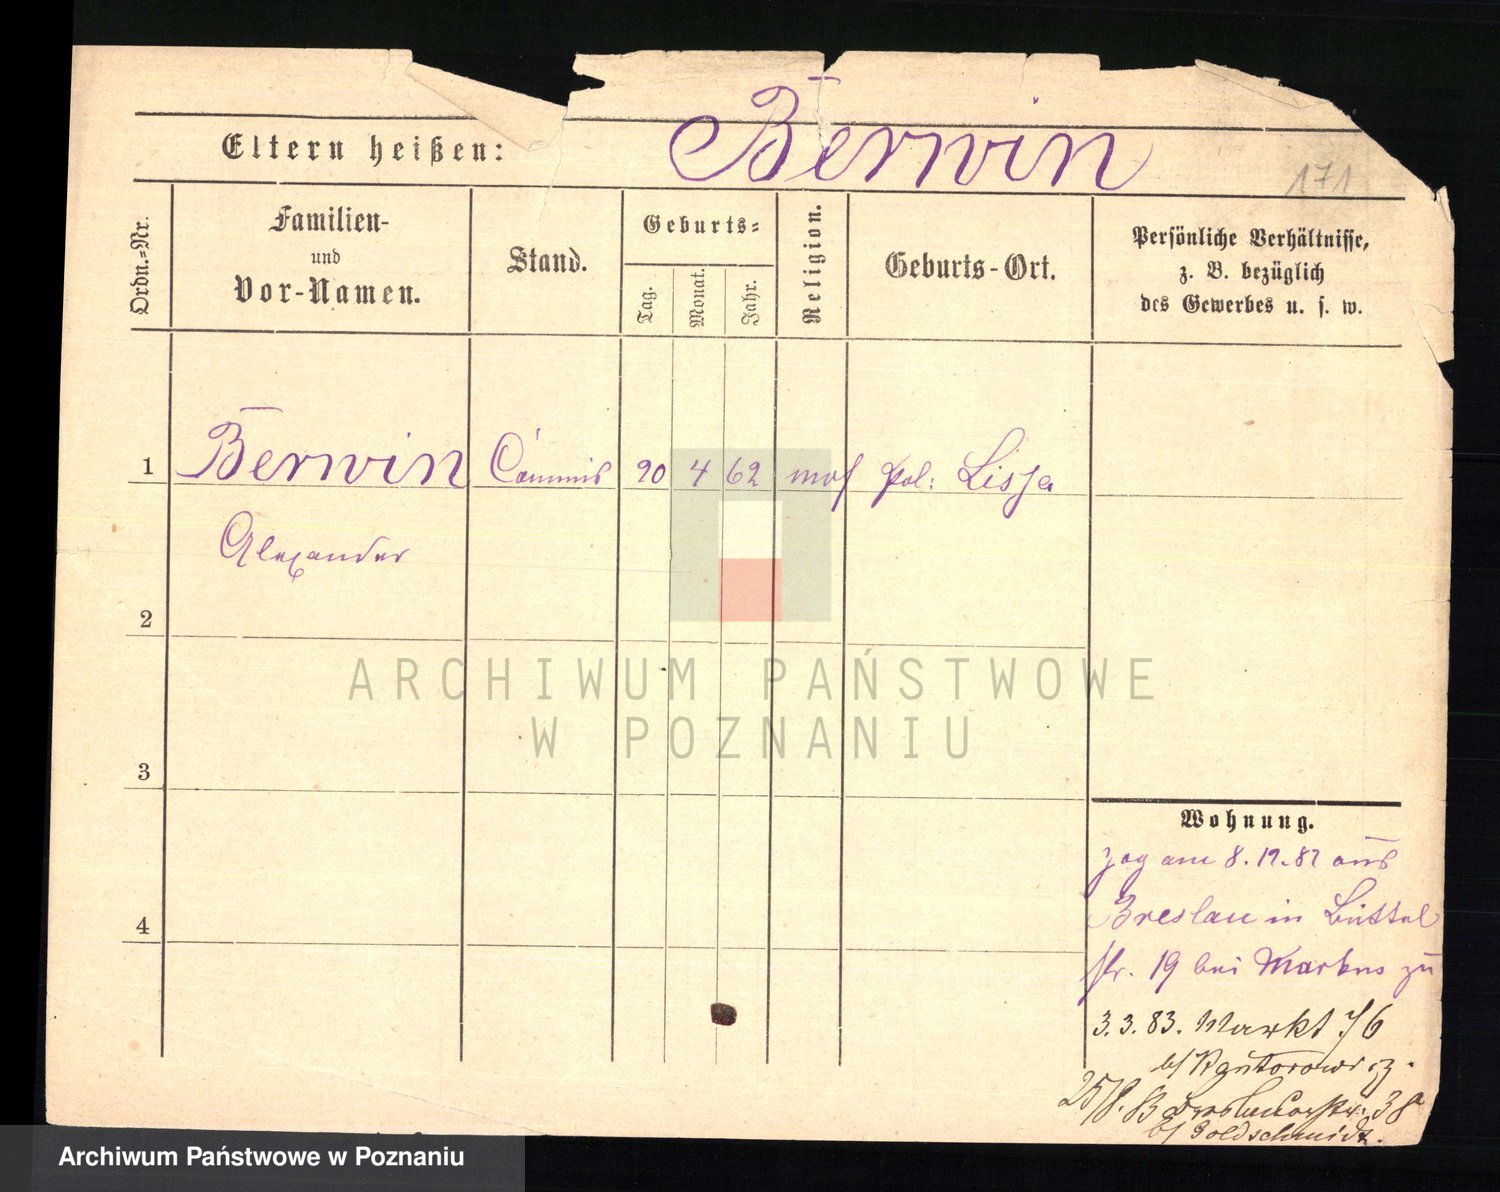 Berwin
Eltern heißen:
171
Ordn.-Nr.
Familien-
und
Vor-Namen.
Stand.
Geburts-
Tag.
Monat.
Jahr.
Religion.
Geburts-Ort.
Persönliche Verhältnisse,
z. B. bezüglich
des Gewerbes u. s. w.
1
Berwin
Commis
20
4
62
mos
Pol: Lissa
Alexander
2
3
4
Wohnung.
zog am 8.12.82 aus
Breslau in Büttel
str. 19 bei Markus zu
3.3.83. Markt 76
b/ Kantorowicz.
25/8.83 Breslauerstr. 38
b/ Goldschmidt.
ARCHIWUM PAŃSTWOWE
W POZNANIU
Archiwum Państwowe w Poznaniu